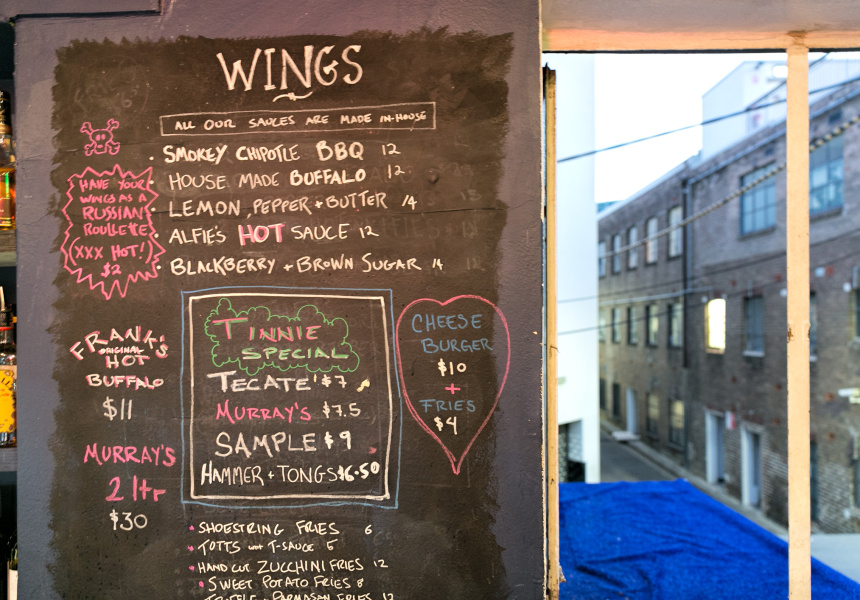 WINGS
ALL OUR SAUCES ARE MADE IN-HOUSE
• SMOKEY CHIPOTLE BBQ 12
HOUSE MADE BUFFALO 12
LEMON, PEPPER + BUTTER 14
• ALFIE'S HOT SAUCE 12
• BLACKBERRY + BROWN SUGAR 14
HAVE YOUR
WINGS AS A
RUSSIAN
ROULETTE
(XXX HOT!)
$2
FRANK'S
ORIGINAL
HOT
BUFFALO
$11
MURRAY'S
2 ltr
$30
TINNIE
SPECIAL
TECATE $7
MURRAY'S $7.5
SAMPLE $9
HAMMER + TONGS $6.50
CHEESE
BURGER
$10
+
FRIES
$4
• SHOESTRING FRIES 6
• TOTTS T-SAUCE 5
• HAND CUT ZUCCHINI FRIES 12
• SWEET POTATO FRIES 8
PARMASAN FRIES 12